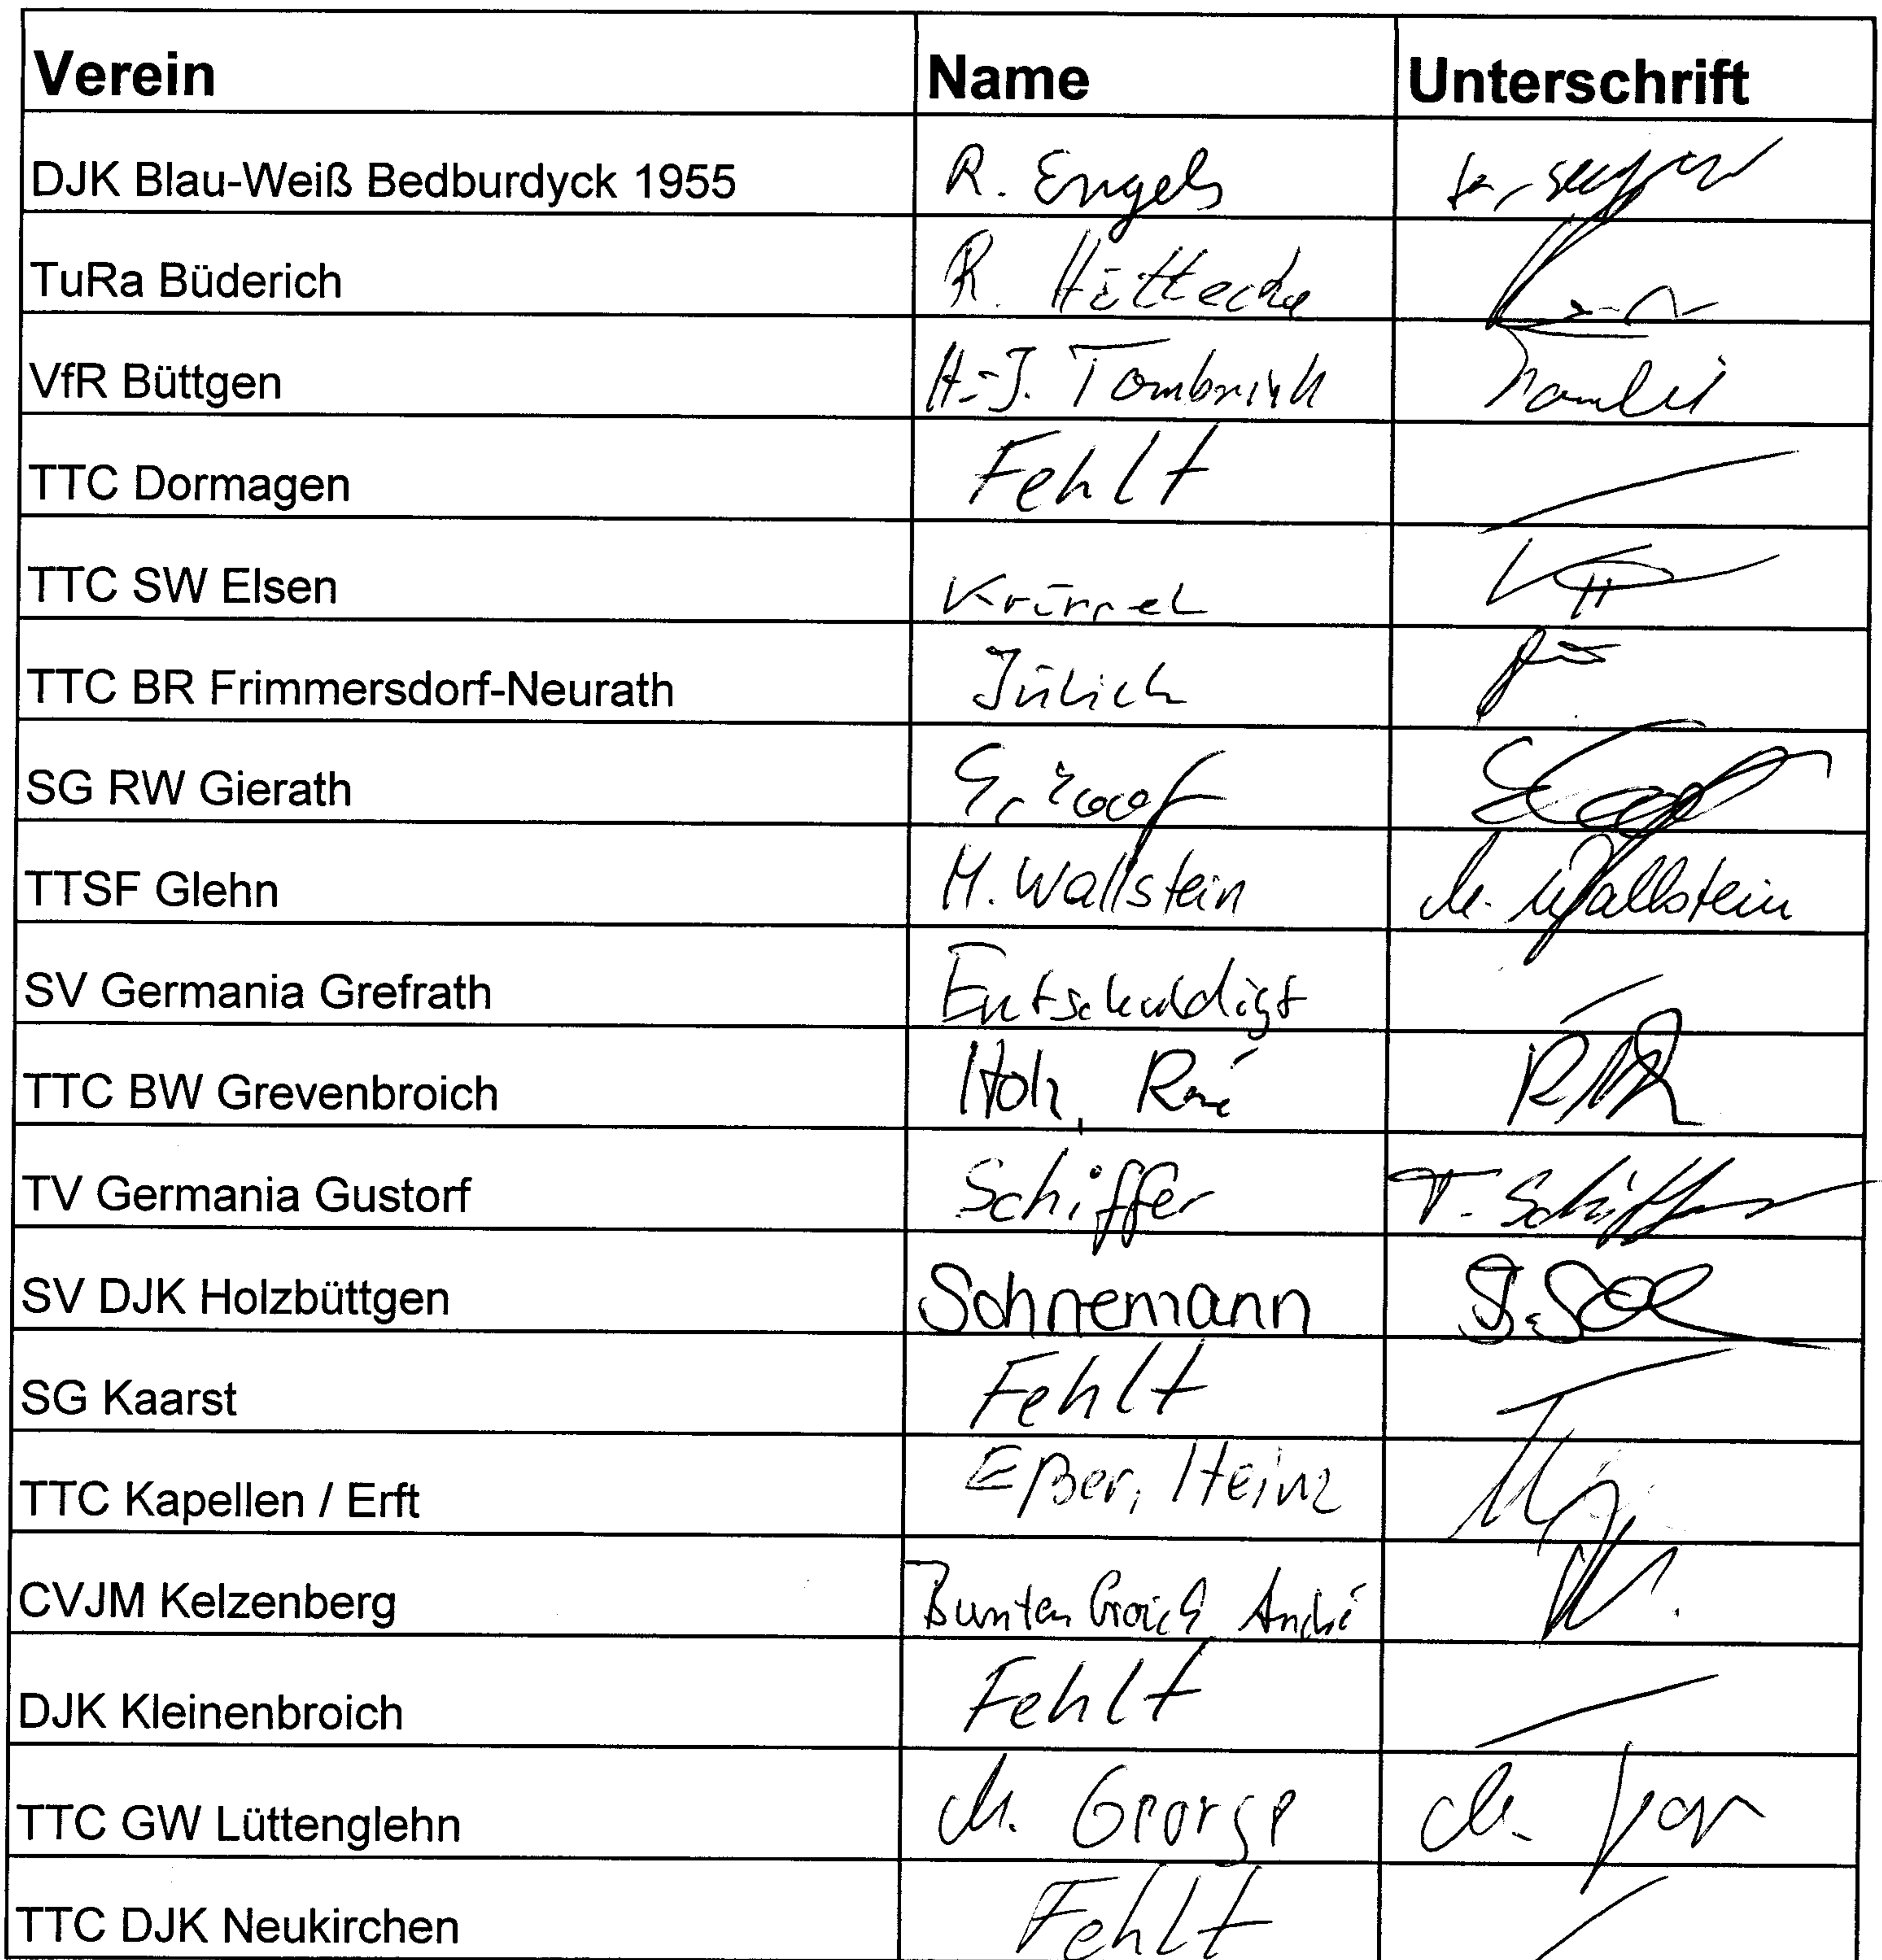 Verein Name Unterschrift
DJK Blau-Weiß Bedburdyck 1955 R. Engels
TuRa Büderich R.
VfR Büttgen H-J. Tombrink
TTC Dormagen Fehlt
TTC SW Elsen
TTC BR Frimmersdorf-Neurath Jülich
SG RW Gierath
TTSF Glehn M. Wallstein M. Wallstein
SV Germania Grefrath Entschuldigt
TTC BW Grevenbroich René
TV Germania Gustorf Schiffer T. Schiffer
SV DJK Holzbüttgen Sohnemann
SG Kaarst Fehlt
TTC Kapellen / Erft Eßer, Heinz
CVJM Kelzenberg Buntenbroich André
DJK Kleinenbroich Fehlt
TTC GW Lüttenglehn M. George M.
TTC DJK Neukirchen Fehlt